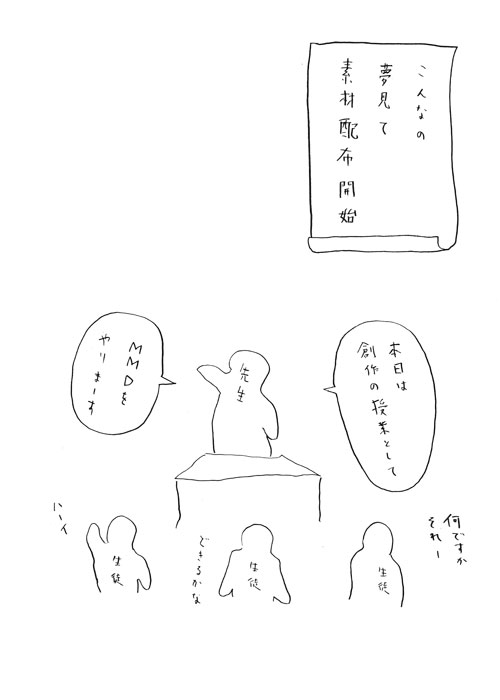 こんなの
夢見て
素材配布開始
本日は
創作の授業として
先生
MMDを
やりまーす
何ですか
それー
生徒
できるかな
生徒
ハーイ
生徒